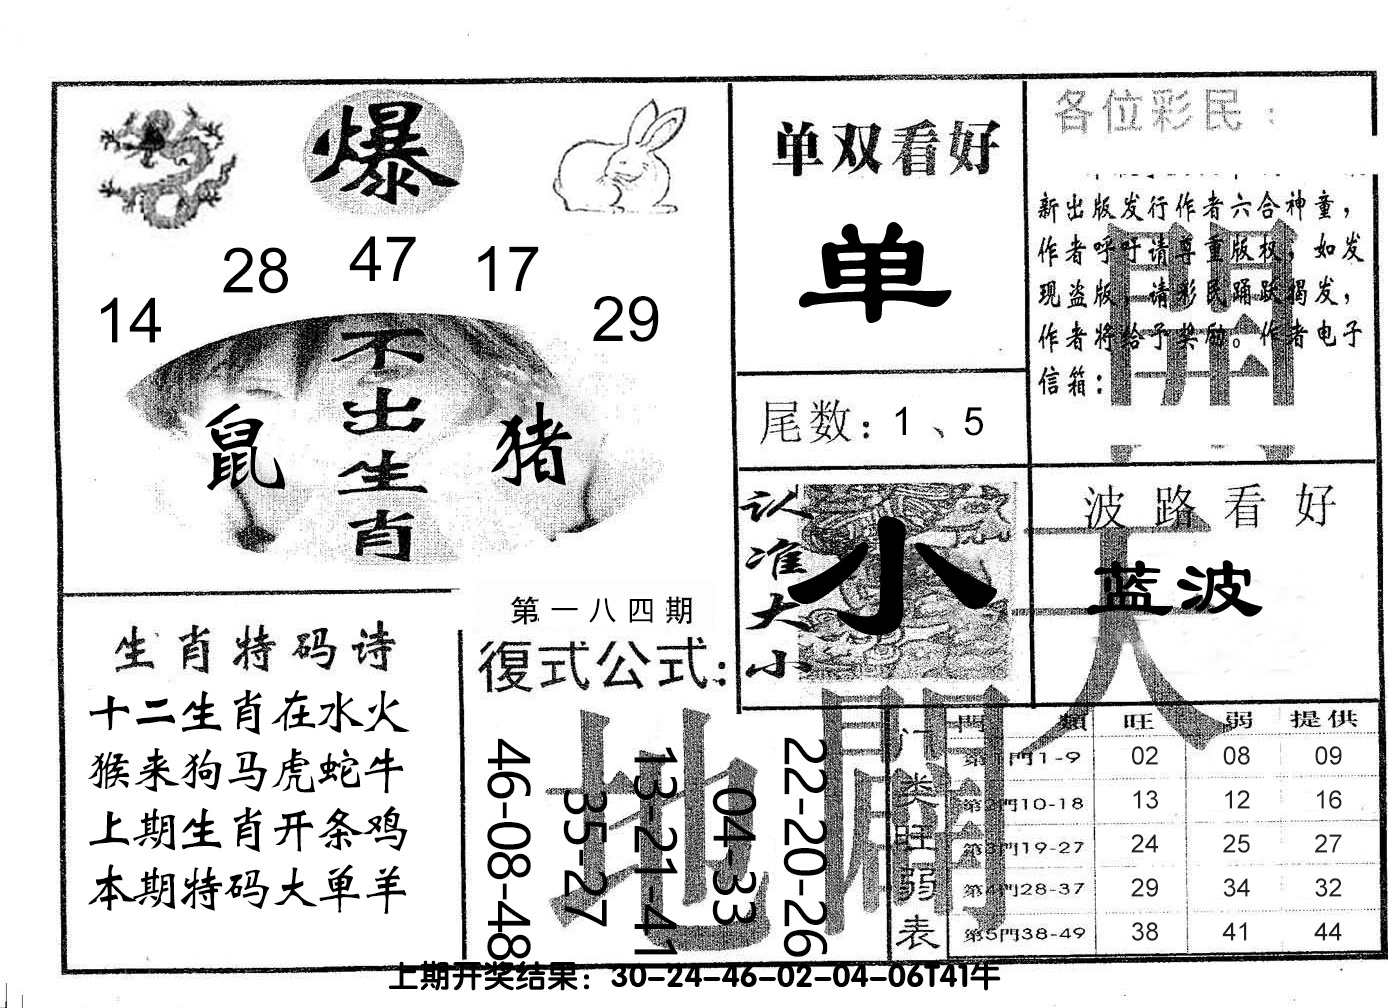 爆
14 28 47 17 29
不出生肖
鼠
猪
单双看好
单
尾数：1、5
认准大小
小
各位彩民：
新出版发行作者六合神童，
作者呼吁请尊重版权，如发
现盗版，请彩民踊跃揭发，
作者将给予奖励。作者电子
信箱：
開
波路看好
蓝波
天
生肖特码诗
十二生肖在水火
猴来狗马虎蛇牛
上期生肖开条鸡
本期特码大单羊
第一八四期
復式公式：
46-08-48
35-27
13-21-41
04-33
22-20-26
地
門类旺弱表
門類 旺 弱 提供
第1門1-9 02 08 09
第2門10-18 13 12 16
第3門19-27 24 25 27
第4門28-37 29 34 32
第5門38-49 38 41 44
上期开奖结果：30-24-46-02-04-06T41牛